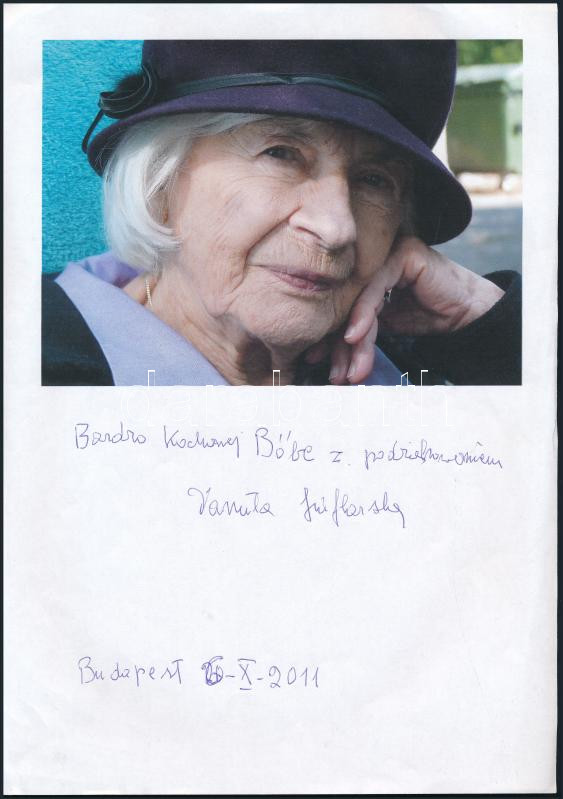 darabanth
Bardzo Kochanej Bőbe z podziękowaniem
Danuta Szaflarska
Budapest 6-X-2011